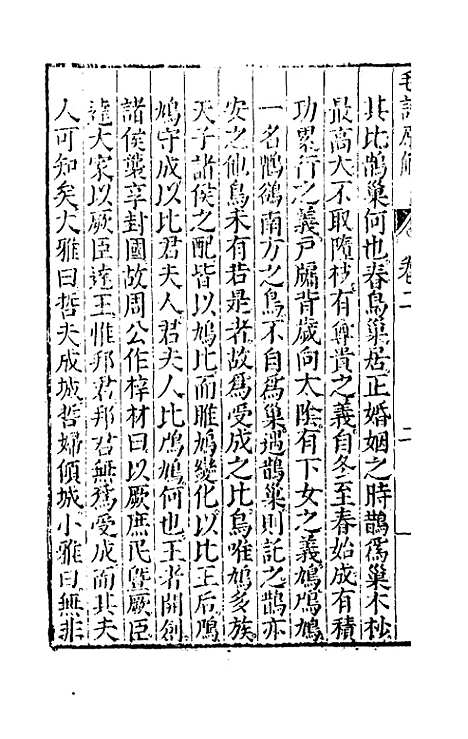 毛詩原解 卷二 二
其比鵲巢何也春鳥巢居正婚姻之時鵲爲巢木杪
最高大不取隨枝有尊貴之義自冬至春始成有積
功累行之義戸牖背歲向太陰有下女之義鳩鳲鳩
一名鴶鵴南方之鳥不自爲巢遇鵲巢則託之鵲亦
安之他鳥未有若是者故爲受成之比鳥唯鳩多族
天子諸侯之配皆以鳩比而雎鳩變化以比王后鳲
鳩守成以比君夫人君夫人比鳲鳩何也王者開創
諸侯襲享封國故周公作梓材曰以厥庶民曁厥臣
達大家以厥臣達王惟邦君邦君無爲受成而其夫
人可知矣大雅曰哲夫成城哲婦傾城小雅曰無非